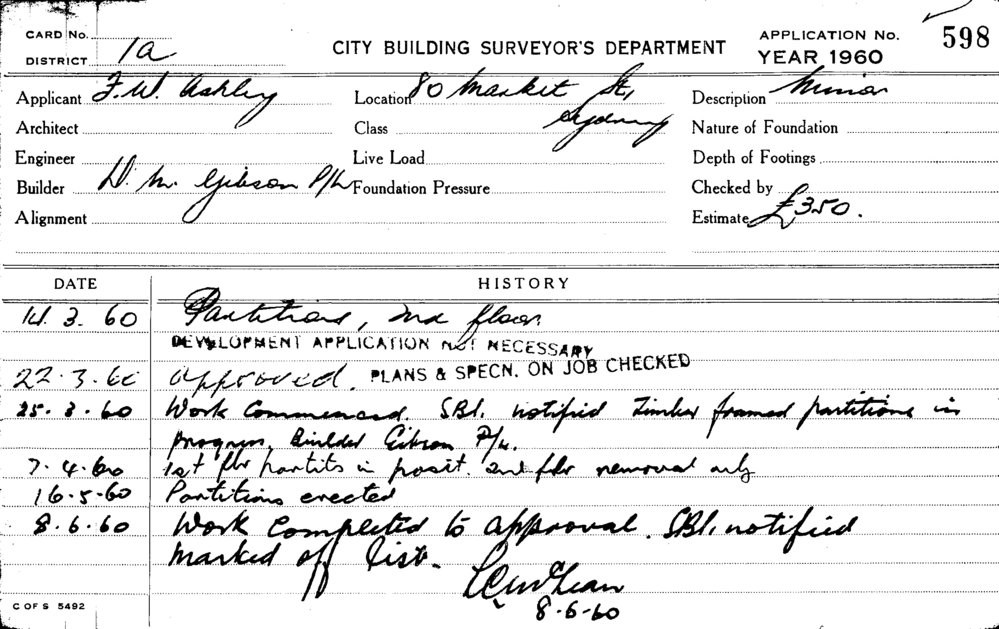 CARD No.
DISTRICT 1a
CITY BUILDING SURVEYOR'S DEPARTMENT
APPLICATION No. 598
YEAR 1960
Applicant F.W. Ashley
Location 80 Market St, Sydney
Description Minor
Architect
Class
Nature of Foundation
Engineer
Live Load
Depth of Footings
Builder D. M. Gibson P/L
Foundation Pressure
Checked by
Alignment
Estimate £350.
DATE HISTORY
14. 3. 60 Partitions, 2nd floor
DEVELOPMENT APPLICATION NOT NECESSARY
22.3.60 Approved. PLANS & SPECN. ON JOB CHECKED
25.3.60 Work Commenced. SBI. notified Timber framed partitions in
progress. Builder Gibson P/L.
7.4.60 1st flr partits in posit. 2nd flr removal only
16.5.60 Partitions erected
8.6.60 Work Completed to approval. SBI. notified
marked off list.
8-6-60
C OF S 5492